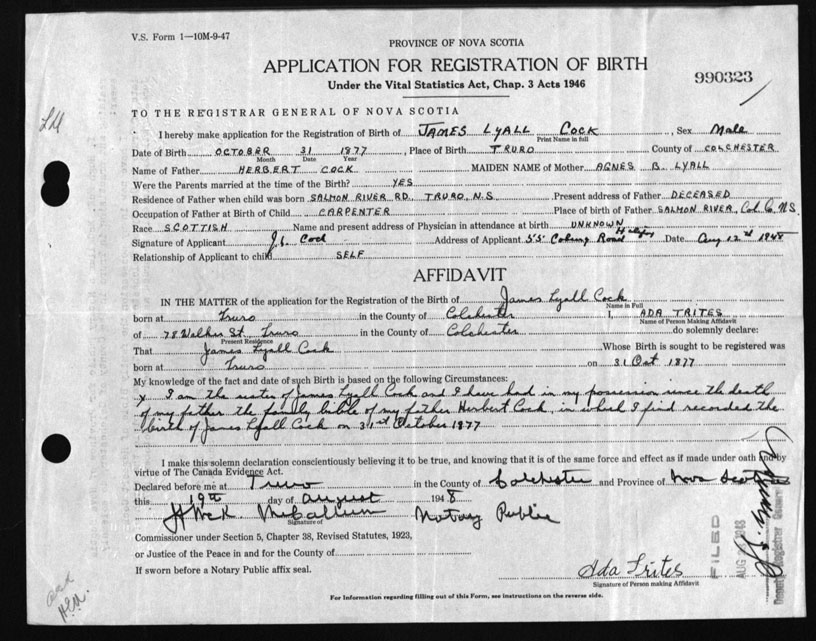 V.S. Form 1—10M-9-47
PROVINCE OF NOVA SCOTIA
APPLICATION FOR REGISTRATION OF BIRTH
990323
Under the Vital Statistics Act, Chap. 3 Acts 1946
TO THE REGISTRAR GENERAL OF NOVA SCOTIA
I hereby make application for the Registration of Birth of JAMES LYALL COCK, Sex Male
Print Name in full
Date of Birth OCTOBER 31 1877, Place of Birth TRURO County of COLCHESTER
Month Date Year
Name of Father HERBERT COCK MAIDEN NAME of Mother AGNES B. LYALL
Were the Parents married at the time of the Birth? YES
Residence of Father when child was born SALMON RIVER RD. TRURO, N.S Present address of Father DECEASED
Occupation of Father at Birth of Child CARPENTER Place of birth of Father SALMON RIVER, Col. Co. N.S.
Race SCOTTISH Name and present address of Physician in attendance at birth UNKNOWN
Signature of Applicant J.L. Cock Address of Applicant 55 Coburg Road Halifax Date Aug 12th 1948
Relationship of Applicant to child SELF
AFFIDAVIT
IN THE MATTER of the application for the Registration of the Birth of James Lyall Cock
Name in Full
born at Truro in the County of Colchester I, ADA TRITES
Name of Person Making Affidavit
of 78 Walker St. Truro in the County of Colchester do solemnly declare:
Present Residence
That James Lyall Cock Whose Birth is sought to be registered was
born at Truro on 31 Oct 1877
My knowledge of the fact and date of such Birth is based on the following Circumstances:
x I am the sister of James Lyall Cock and I have had in my possession since the death
of my father the family bible of my father Herbert Cock, in which I find recorded the
birth of James Lyall Cock on 31st October 1877
I make this solemn declaration conscientiously believing it to be true, and knowing that it is of the same force and effect as if made under oath and by
virtue of The Canada Evidence Act.
Declared before me at Truro in the County of Colchester and Province of Nova Scotia
this 19th day of August 1948
McCallum Notary Public
Signature of
Commissioner under Section 5, Chapter 38, Revised Statutes, 1923,
or Justice of the Peace in and for the County of
If sworn before a Notary Public affix seal.
Ada Trites
Signature of Person making Affidavit
For Information regarding filling out of this Form, see instructions on the reverse side.
FILED
Deputy Registrar General